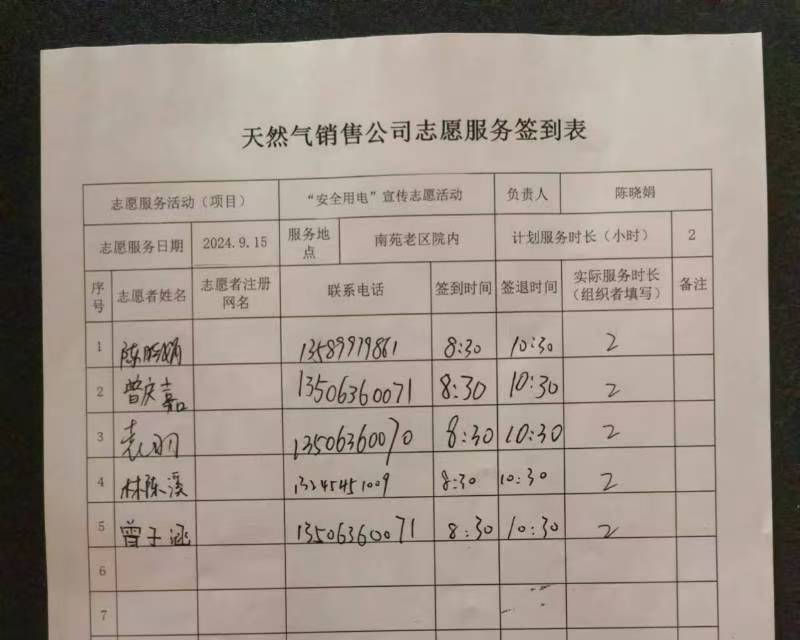 天然气销售公司志愿服务签到表
志愿服务活动（项目） “安全用电”宣传志愿活动 负责人 陈晓娟
志愿服务日期 2024.9.15 服务地点 南苑老区院内 计划服务时长（小时） 2
序号 志愿者姓名 志愿者注册网名 联系电话 签到时间 签退时间 实际服务时长（组织者填写） 备注
1 陈晓娟 13589979861 8:30 10:30 2
2 曾庆嘉 13506360071 8:30 10:30 2
3 袁羽 13506360070 8:30 10:30 2
4 林陈溪 13245451009 8:30 10:30 2
5 曾子涵 13506360071 8:30 10:30 2
6
7